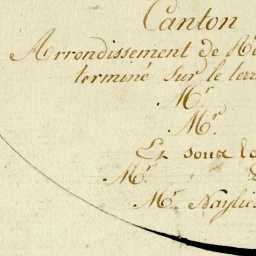 Canton
Arrondissement de
terminé sur le terr
Mr.
Mr.
Et sous la
Mr.
Mr. Naylie